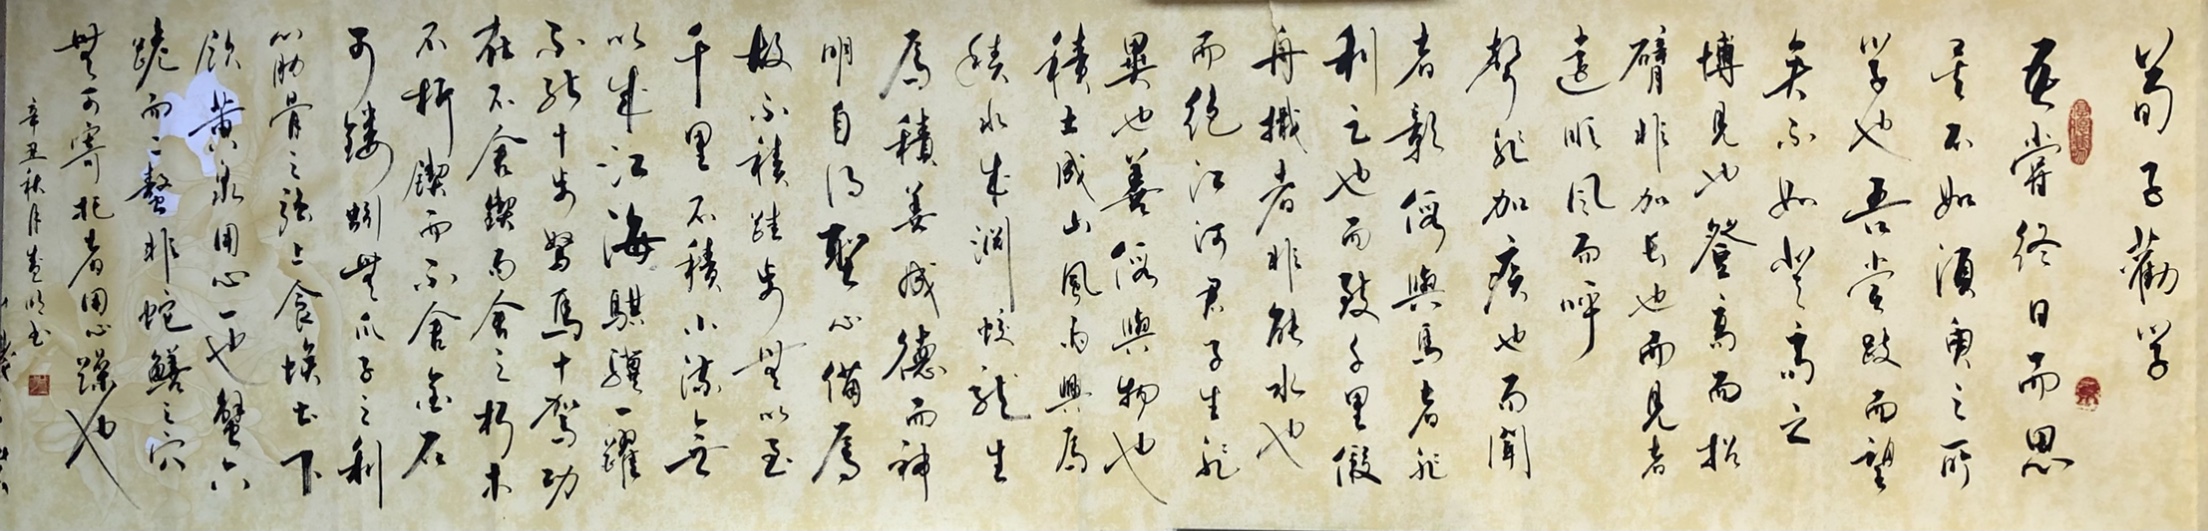 荀子勸学
吾嘗终日而思
矣不如須臾之所
学也吾尝跂而望
矣不如登高之
博見也登高而招
臂非加長也而見者
遠順風而呼
聲非加疾也而聞
者彰假輿馬者非
利足也而致千里假
舟檝者非能水也
而绝江河君子生非
異也善假與物也
積土成山風雨興焉
積水成淵蛟龍生
焉積善成德而神
明自得聖心備焉
故不積跬步無以至
千里不積小流無
以成江海騏驥一躍
不能十步駑馬十駕功
在不舍鍥而舍之朽木
不折鍥而不舍金石
可鏤蚓無爪牙之利
筋骨之强上食埃土下
飲黄泉用心一也蟹六
跪而二螯非蛇鱔之穴
無可寄托者用心躁也
辛丑秋月书